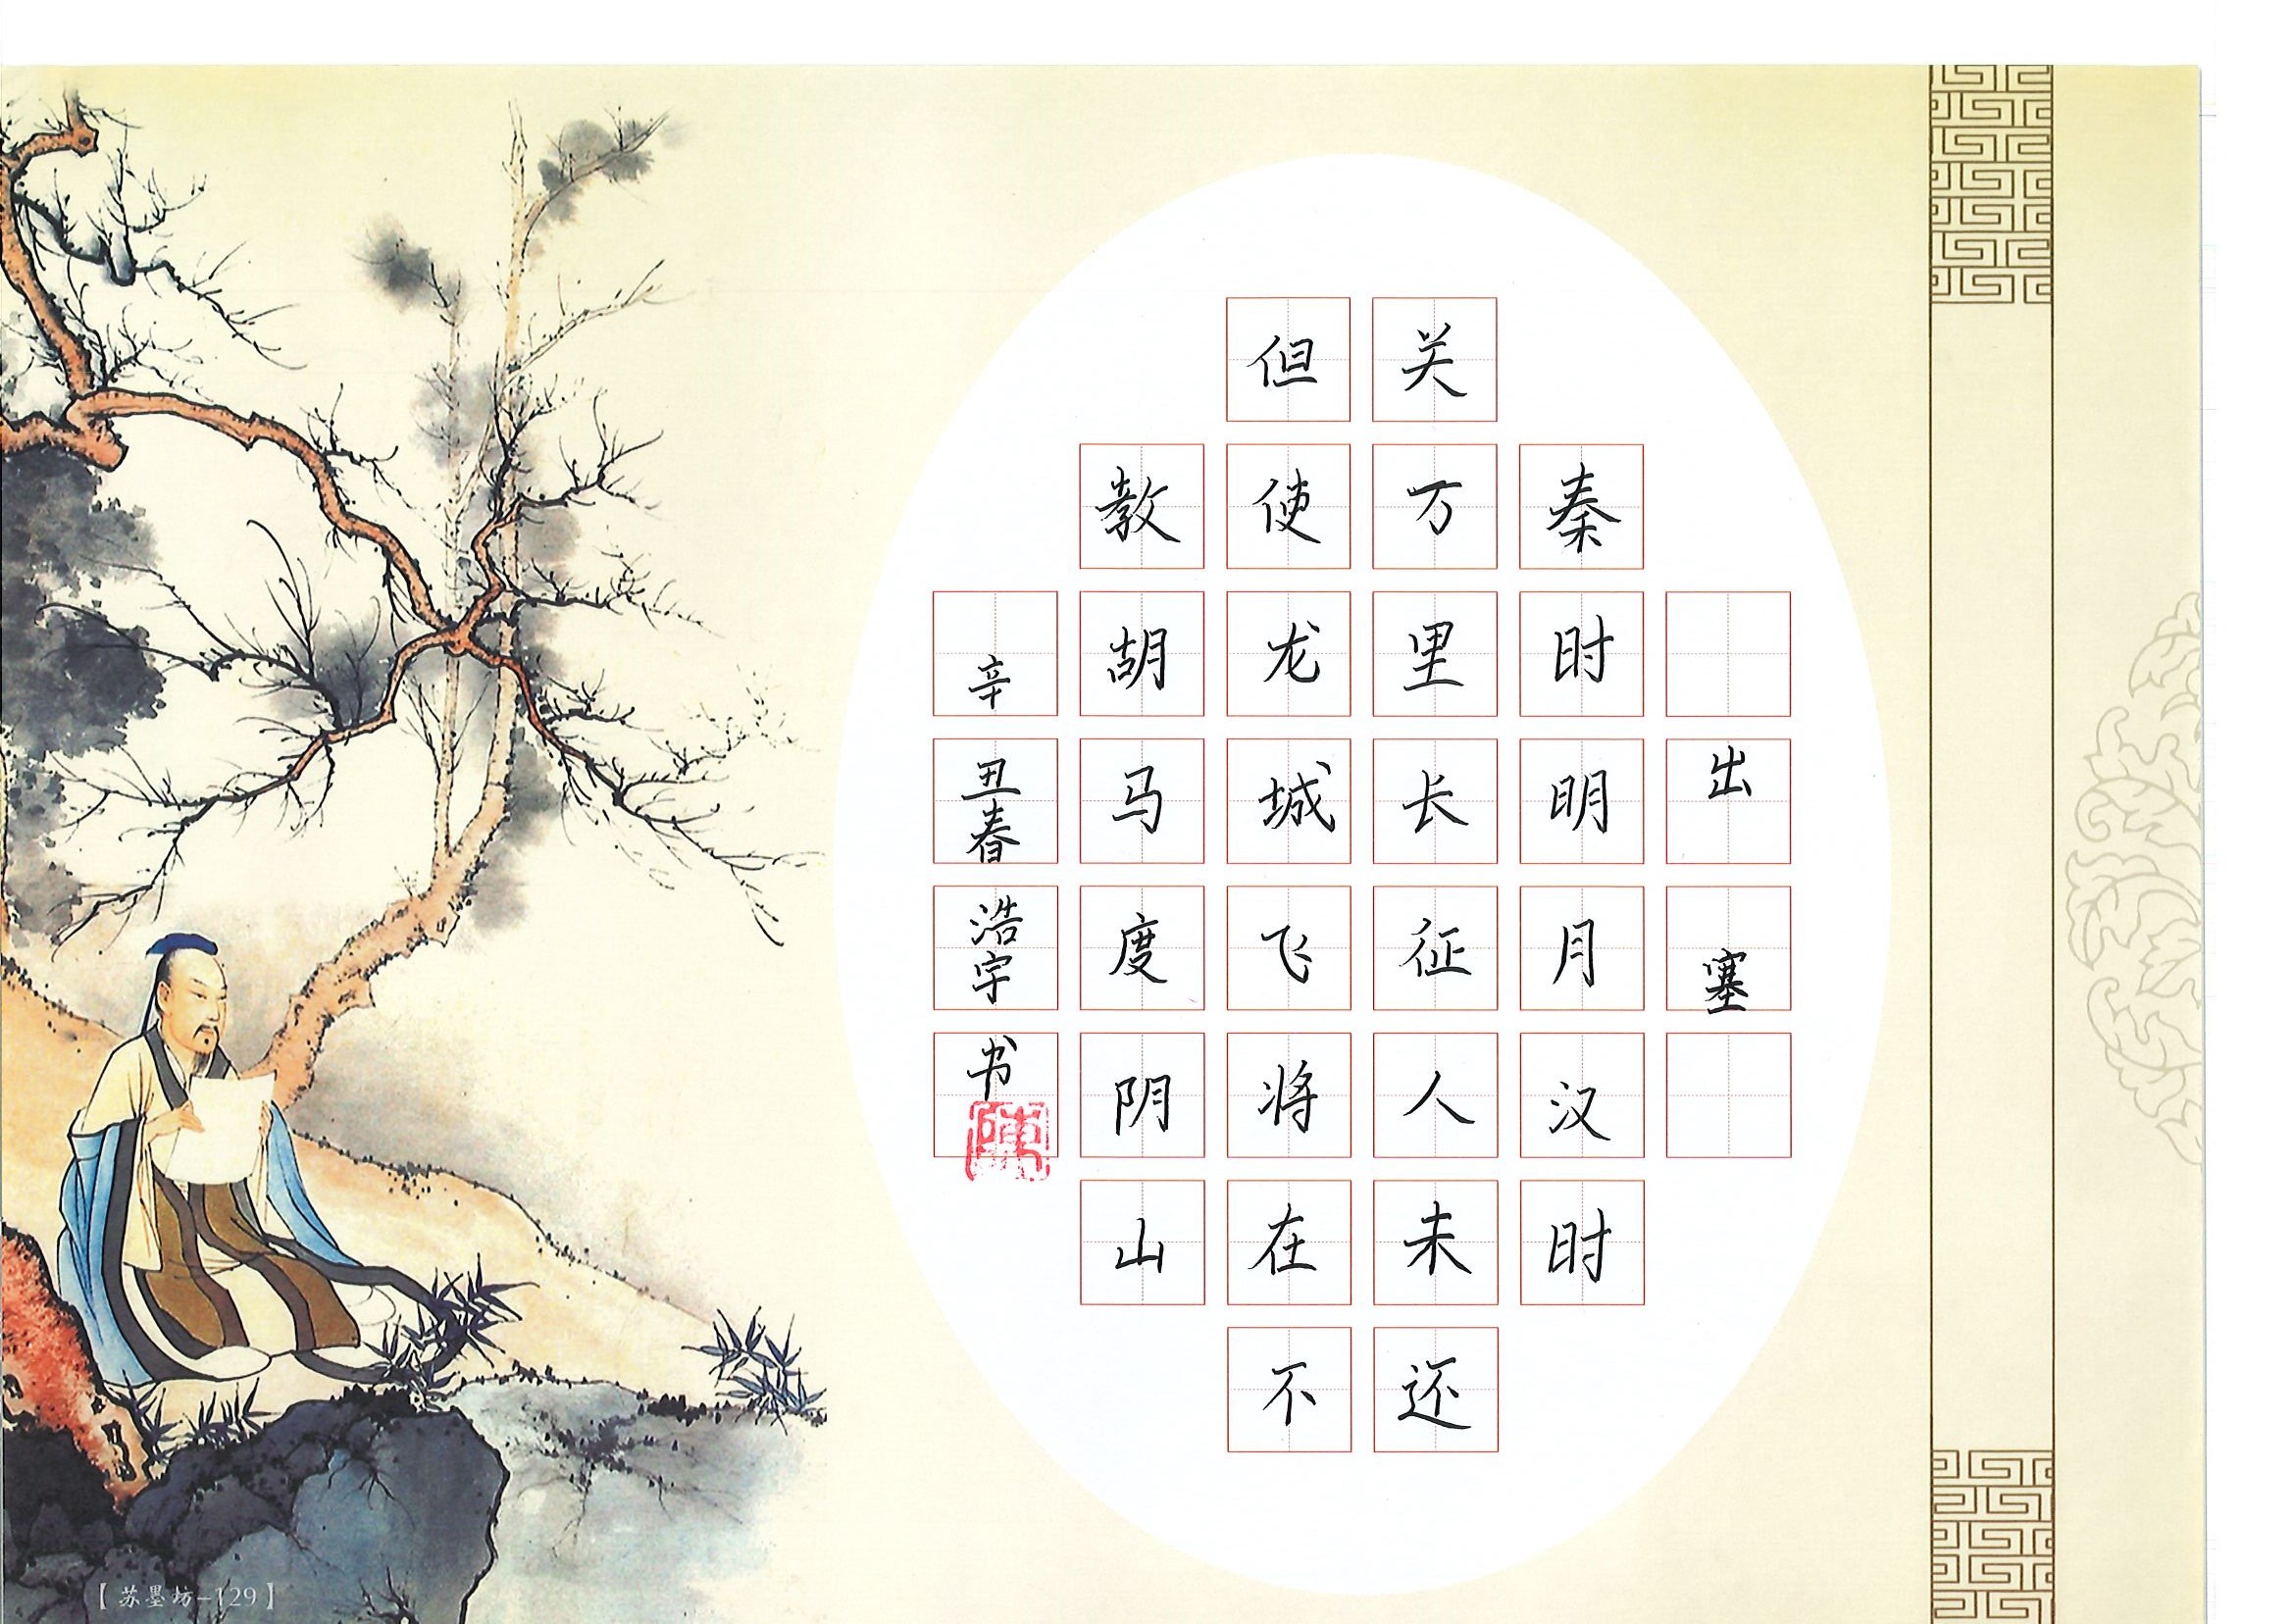 出塞
秦时明月汉时
关万里长征人未还
但使龙城飞将在不
教胡马度阴山
辛丑春浩宇书
陳
【苏墨坊-129】